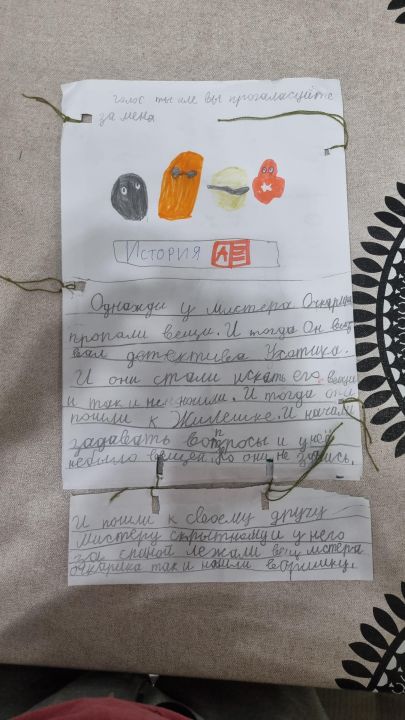 голос ты или вы прогаласуйте
за меня
История
Однажди у мистера Очкарика
пропали вещи. И тогда Он вызвал
детектива Ухатика.
И они стали искать его вещи
и так и не нашли. И тогда они
пошли к Жилешке. И начали
задавать вопросы и у ней
небыло вещей. Но они не здались.
И пошли к своему другу
мистеру скрытному и у него
за спиной лежали вещи мстера
очкарика так и нашли воришку.